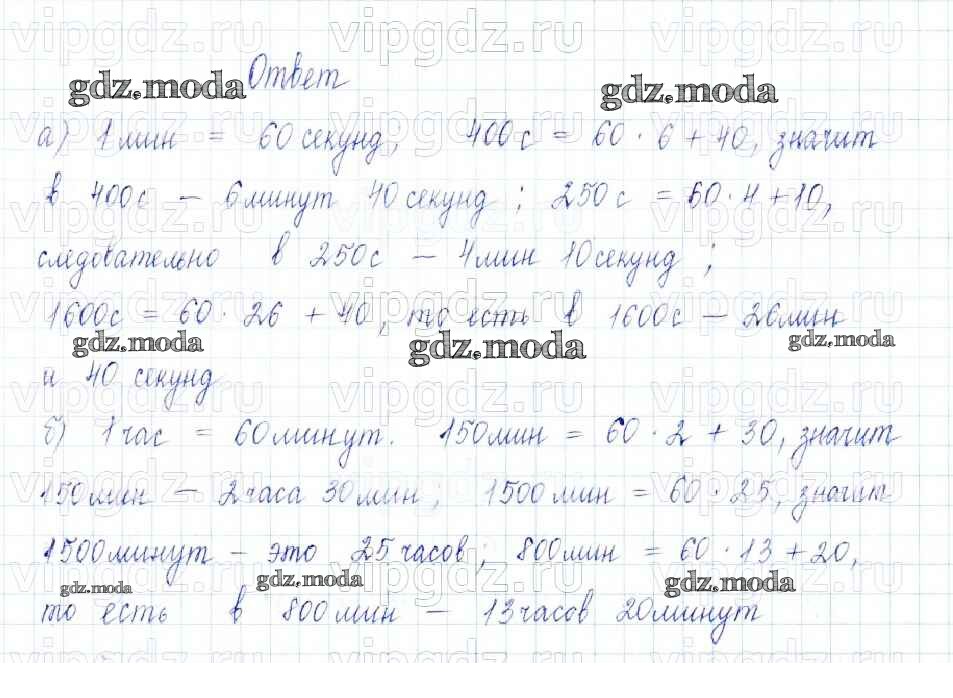 Ответ
а) 1 мин = 60 секунд, 400 с = 60 · 6 + 40, значит
в 400с – 6 минут 40 секунд ; 250 с = 60·4+10,
следовательно в 250с – 4 мин 10 секунд ;
1600с = 60 · 26 + 40, то есть в 1600с – 26 мин
и 40 секунд
б) 1 час = 60 минут. 150 мин = 60 · 2 + 30, значит
150 мин – 2 часа 30 мин ; 1500 мин = 60 · 25, значит
1500 минут – это 25 часов ; 800 мин = 60 · 13 + 20,
то есть в 800 мин – 13 часов 20 минут
gdz.moda
gdz.moda
gdz.moda
gdz.moda
gdz.moda
gdz.moda
gdz.moda
gdz.moda
vipgdz.ru